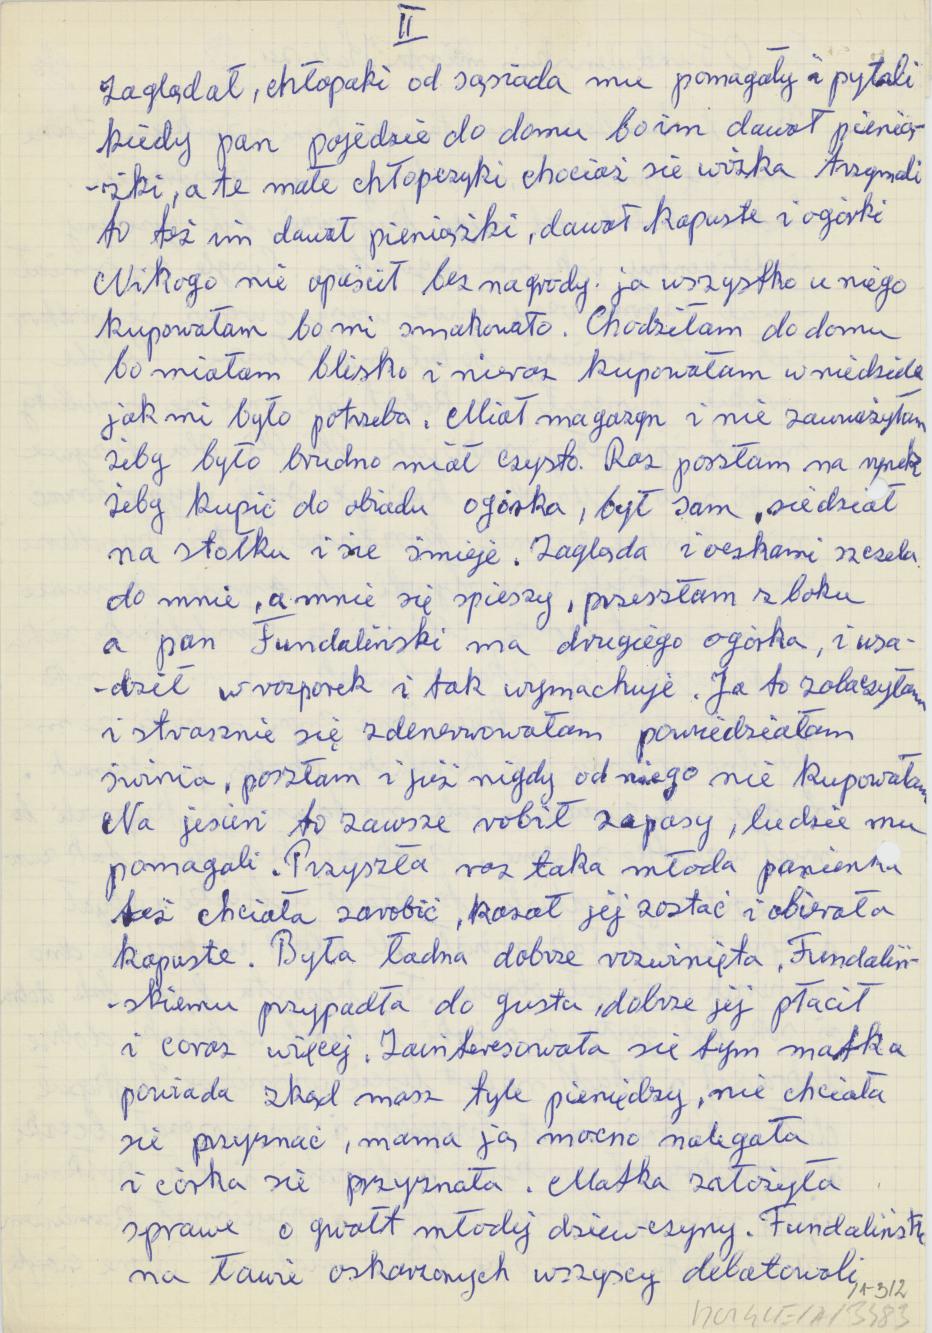 II
zaglądał, chłopaki od sąsiada mu pomagały i pytali
kiedy pan pojedzie do domu bo im dawał pienią-
-żki, a te małe chłopczyki chociaż sie wózka trzymali
to też im dawał pieniążki, dawał kapuste i ogórki
Nikogo nie opuścił bez nagrody. ja wszystko u niego
kupowałam bo mi smakowało. Chodziłam do domu
bo miałam blisko i nieraz kupowałam w niedziele
jak mi było potrzeba. Miał magazyn i nie zauważyłam
żeby było brudno miał czysto. Raz poszłam na rynek
żeby kupić do obiadu ogórka, był sam, siedział
na stołku i sie śmieje. Zagląda i oczkami szczela
do mnie, a mnie się spieszy, przeszłam z boku
a pan Fundaliński ma drugiego ogórka, i wsa-
-dził w rozporek i tak wymachuje. Ja to zobaczyłam
i strasznie się zdenerwowałam powiedziałam
świnia, poszłam i już nigdy od niego nie kupowałam
Na jesień to zawsze robił zapasy, ludzie mu
pomagali. Przyszła raz taka młoda panienka
też chciała zarobić, kazał jej zostać i obierała
kapuste. Była ładna dobrze rozwinięta, Fundaliń-
-skiemu przypadła do gustu, dobrze jej płacił
i coraz więcej. Zainteresowała sie tym matka
powiada zkąd masz tyle pieniędzy, nie chciała
sie przyznać, mama ją mocno nalegała
i córka sie przyznała. Matka założyła
sprawe o gwałt młodej dziew-czyny. Fundaliński
na ławie oskarżonych wszyscy debatowali